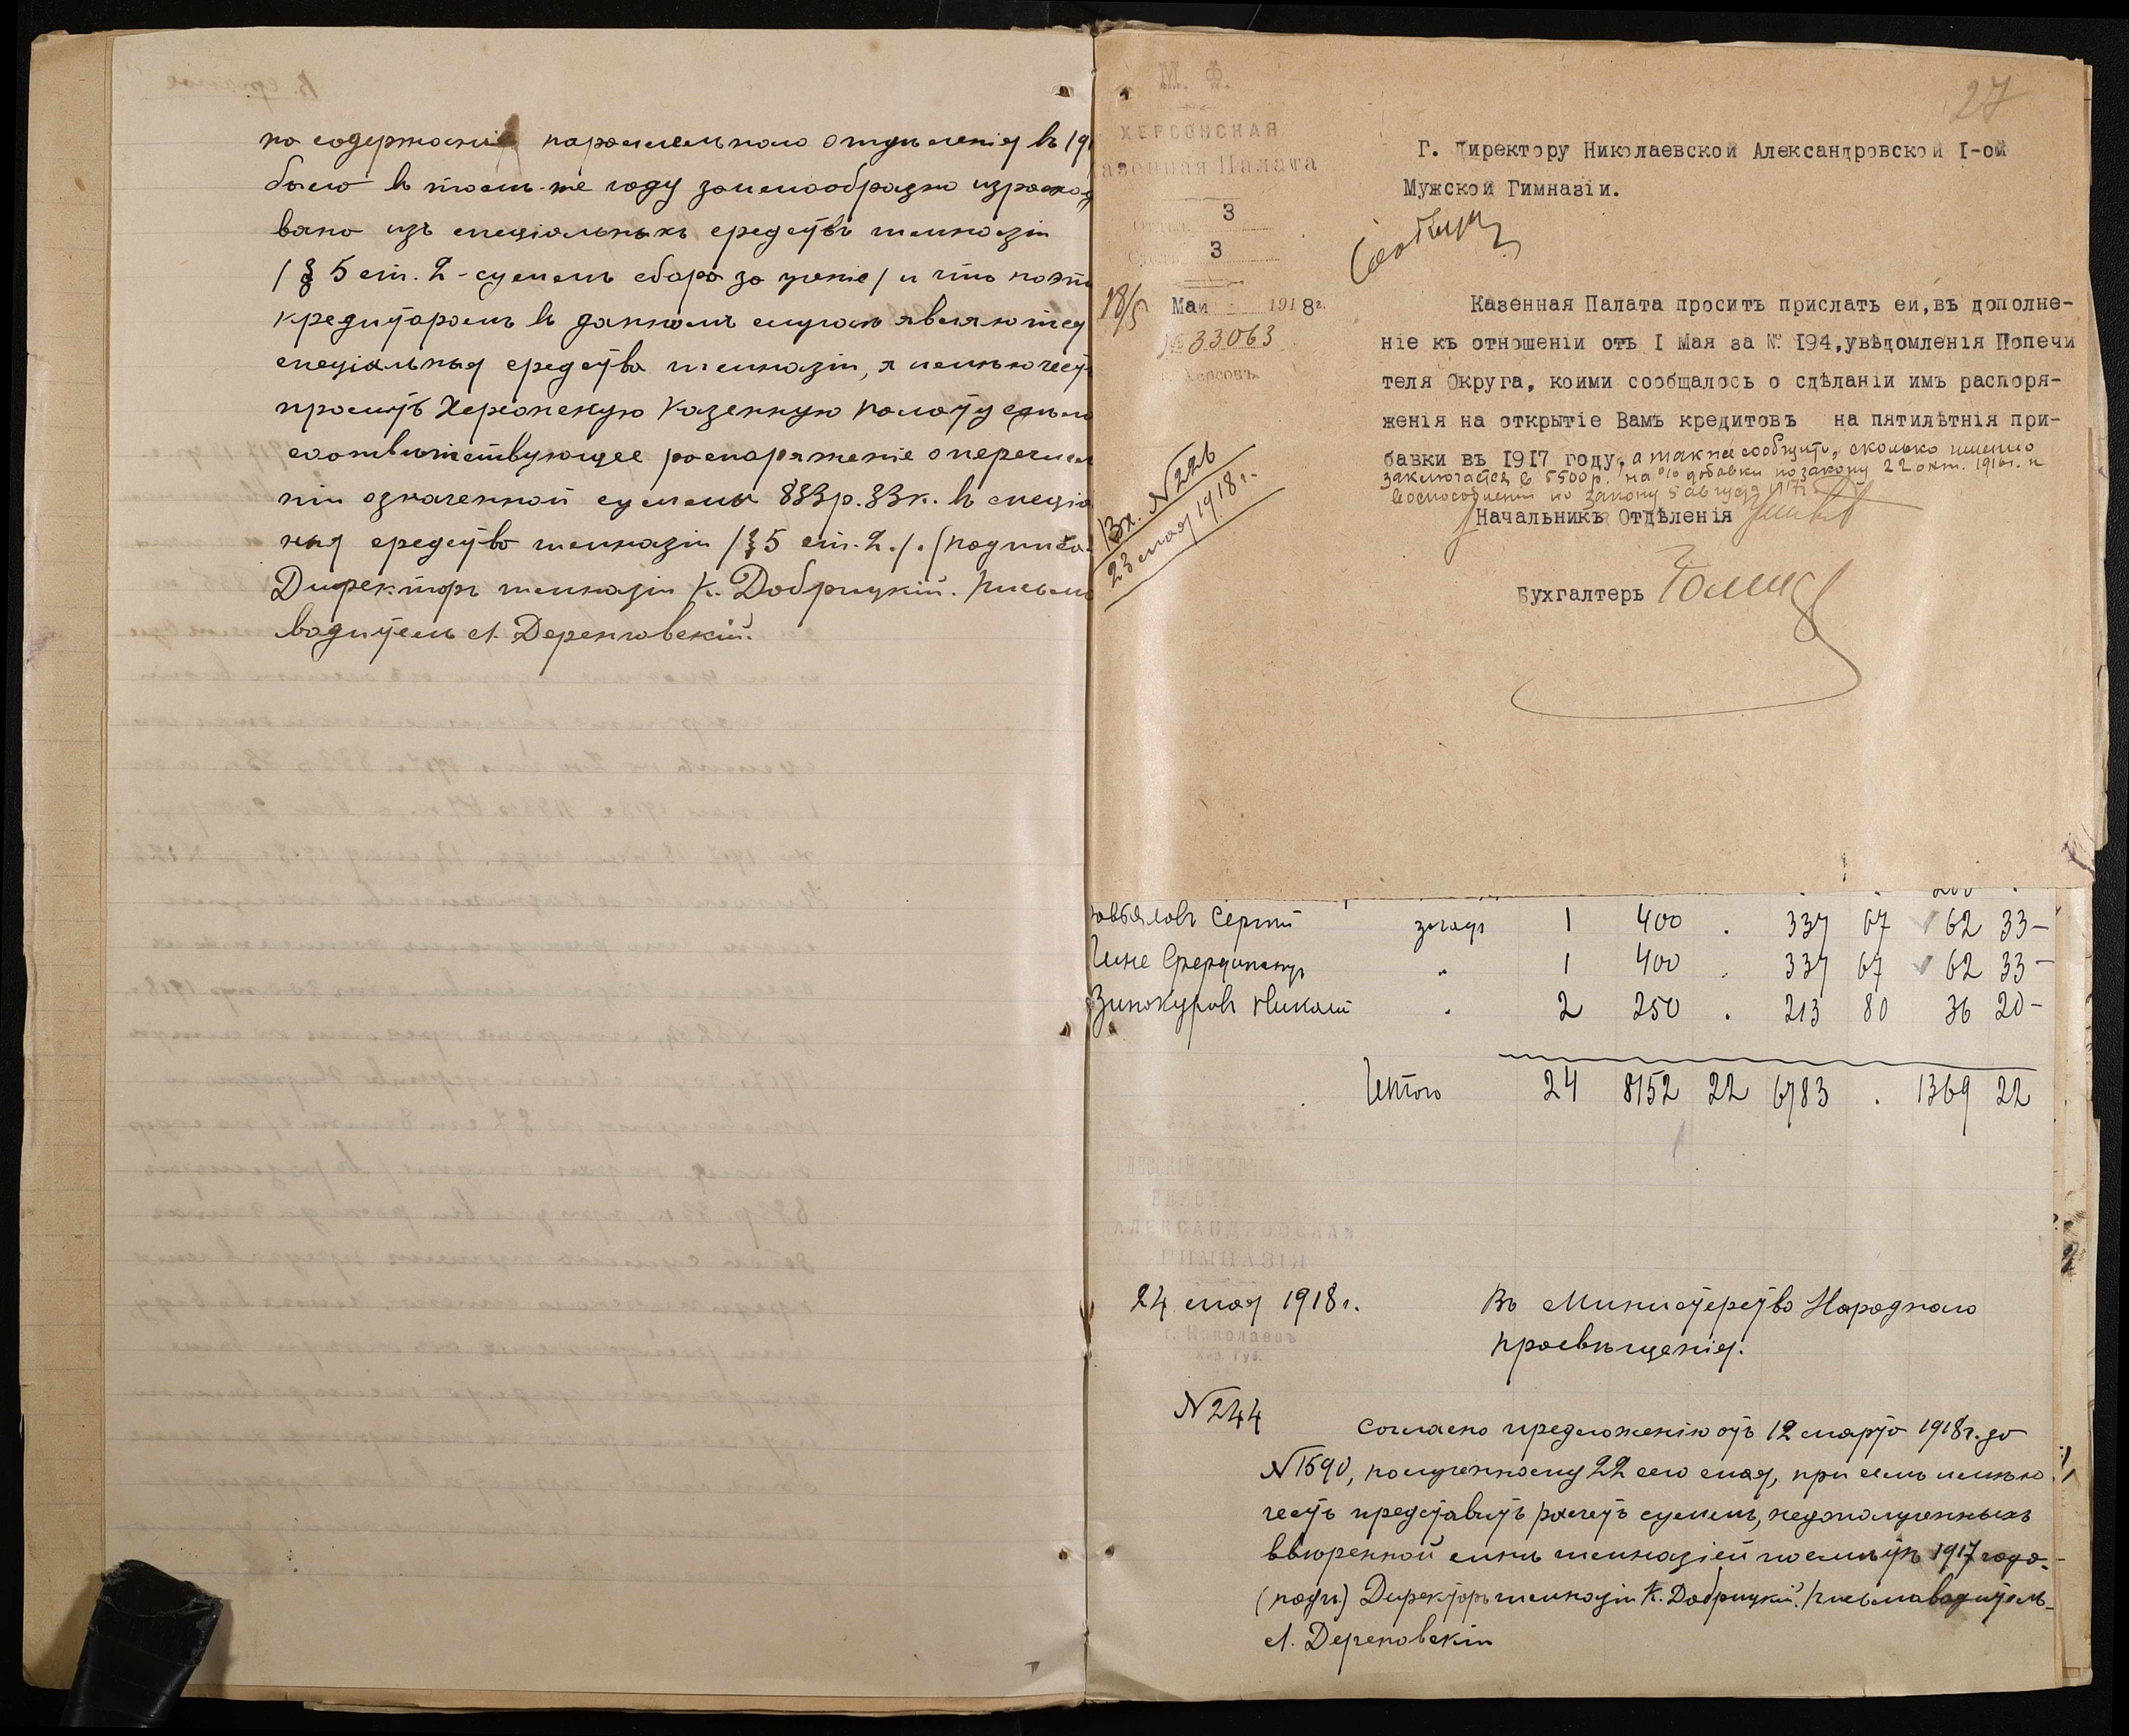 на содержаніе параллельнаго отдѣленія въ 19
было въ томъ-же году заимообразно израсход
вано изъ спеціальныхъ средствъ гимназіи
/§ 5 ст. 2 - суммъ сбора за ученіе/ и что
кредиторомъ въ данномъ случаѣ являются
спеціальныя средства гимназіи, я имѣю честь
просить Херсонскую Казенную Палату
соотвѣтствующее распоряженіе о перечисле
ніи означенной суммы 883р.33к. въ спеціа
ныя средства гимназіи /§5 ст. 2./. (подписа
Директоръ гимназіи К. Добрицкій. Письмо
водитель А. Деренговскій.
27
М. Ф.
ХЕРСОНСКАЯ
азенная Палата
3
3
18/5 Мая 1918г.
№ 33063
Херсонъ
Вх. №226
23 мая 1918 г.
Г. Директору Николаевской Александровской I-ой
Мужской Гимназіи.
Казенная Палата проситъ прислать ей,въ дополне-
ніе къ отношеніи отъ I Мая за № I94,увѣдомленія Попечи
теля Округа, коими сообщалось о сдѣланіи имъ распоря-
женія на открытіе Вамъ кредитовъ на пятилѣтнія при-
бавки въ 1917 году, а также сообщить, сколько именно
заключается въ 5500р. на % добавки по закону 22 окт. 1916г. и
по закону 5 августа 1917г.
Начальникъ Отдѣленія
Бухгалтеръ
Сергѣй 1 400 . 337 67 62 33-
Фердинандъ " 1 400 . 337 67 62 33-
Винокуровъ Николай " 2 250 . 213 80 36 20-
Итого 24 8152 22 6783 . 1369 22
АЛЕКСАНДРОВСКАЯ
ГИМНАЗІЯ
24 мая 1918 г.
г. Николаевъ
Хер. Губ.
№ 244
Въ Министерство Народнаго
Просвѣщенія.
Согласно предложенію отъ 12 марта 1918г. за
№ 1590, полученному 22 сего мая, при семъ имѣю
честь представить расчетъ суммъ, недополученныхъ
ввѣренной мнѣ гимназіей по смѣтѣ 1917 года.
(подп.) Директоръ гимназіи К. Добрицкій. Письмоводитель
А. Деренговскій